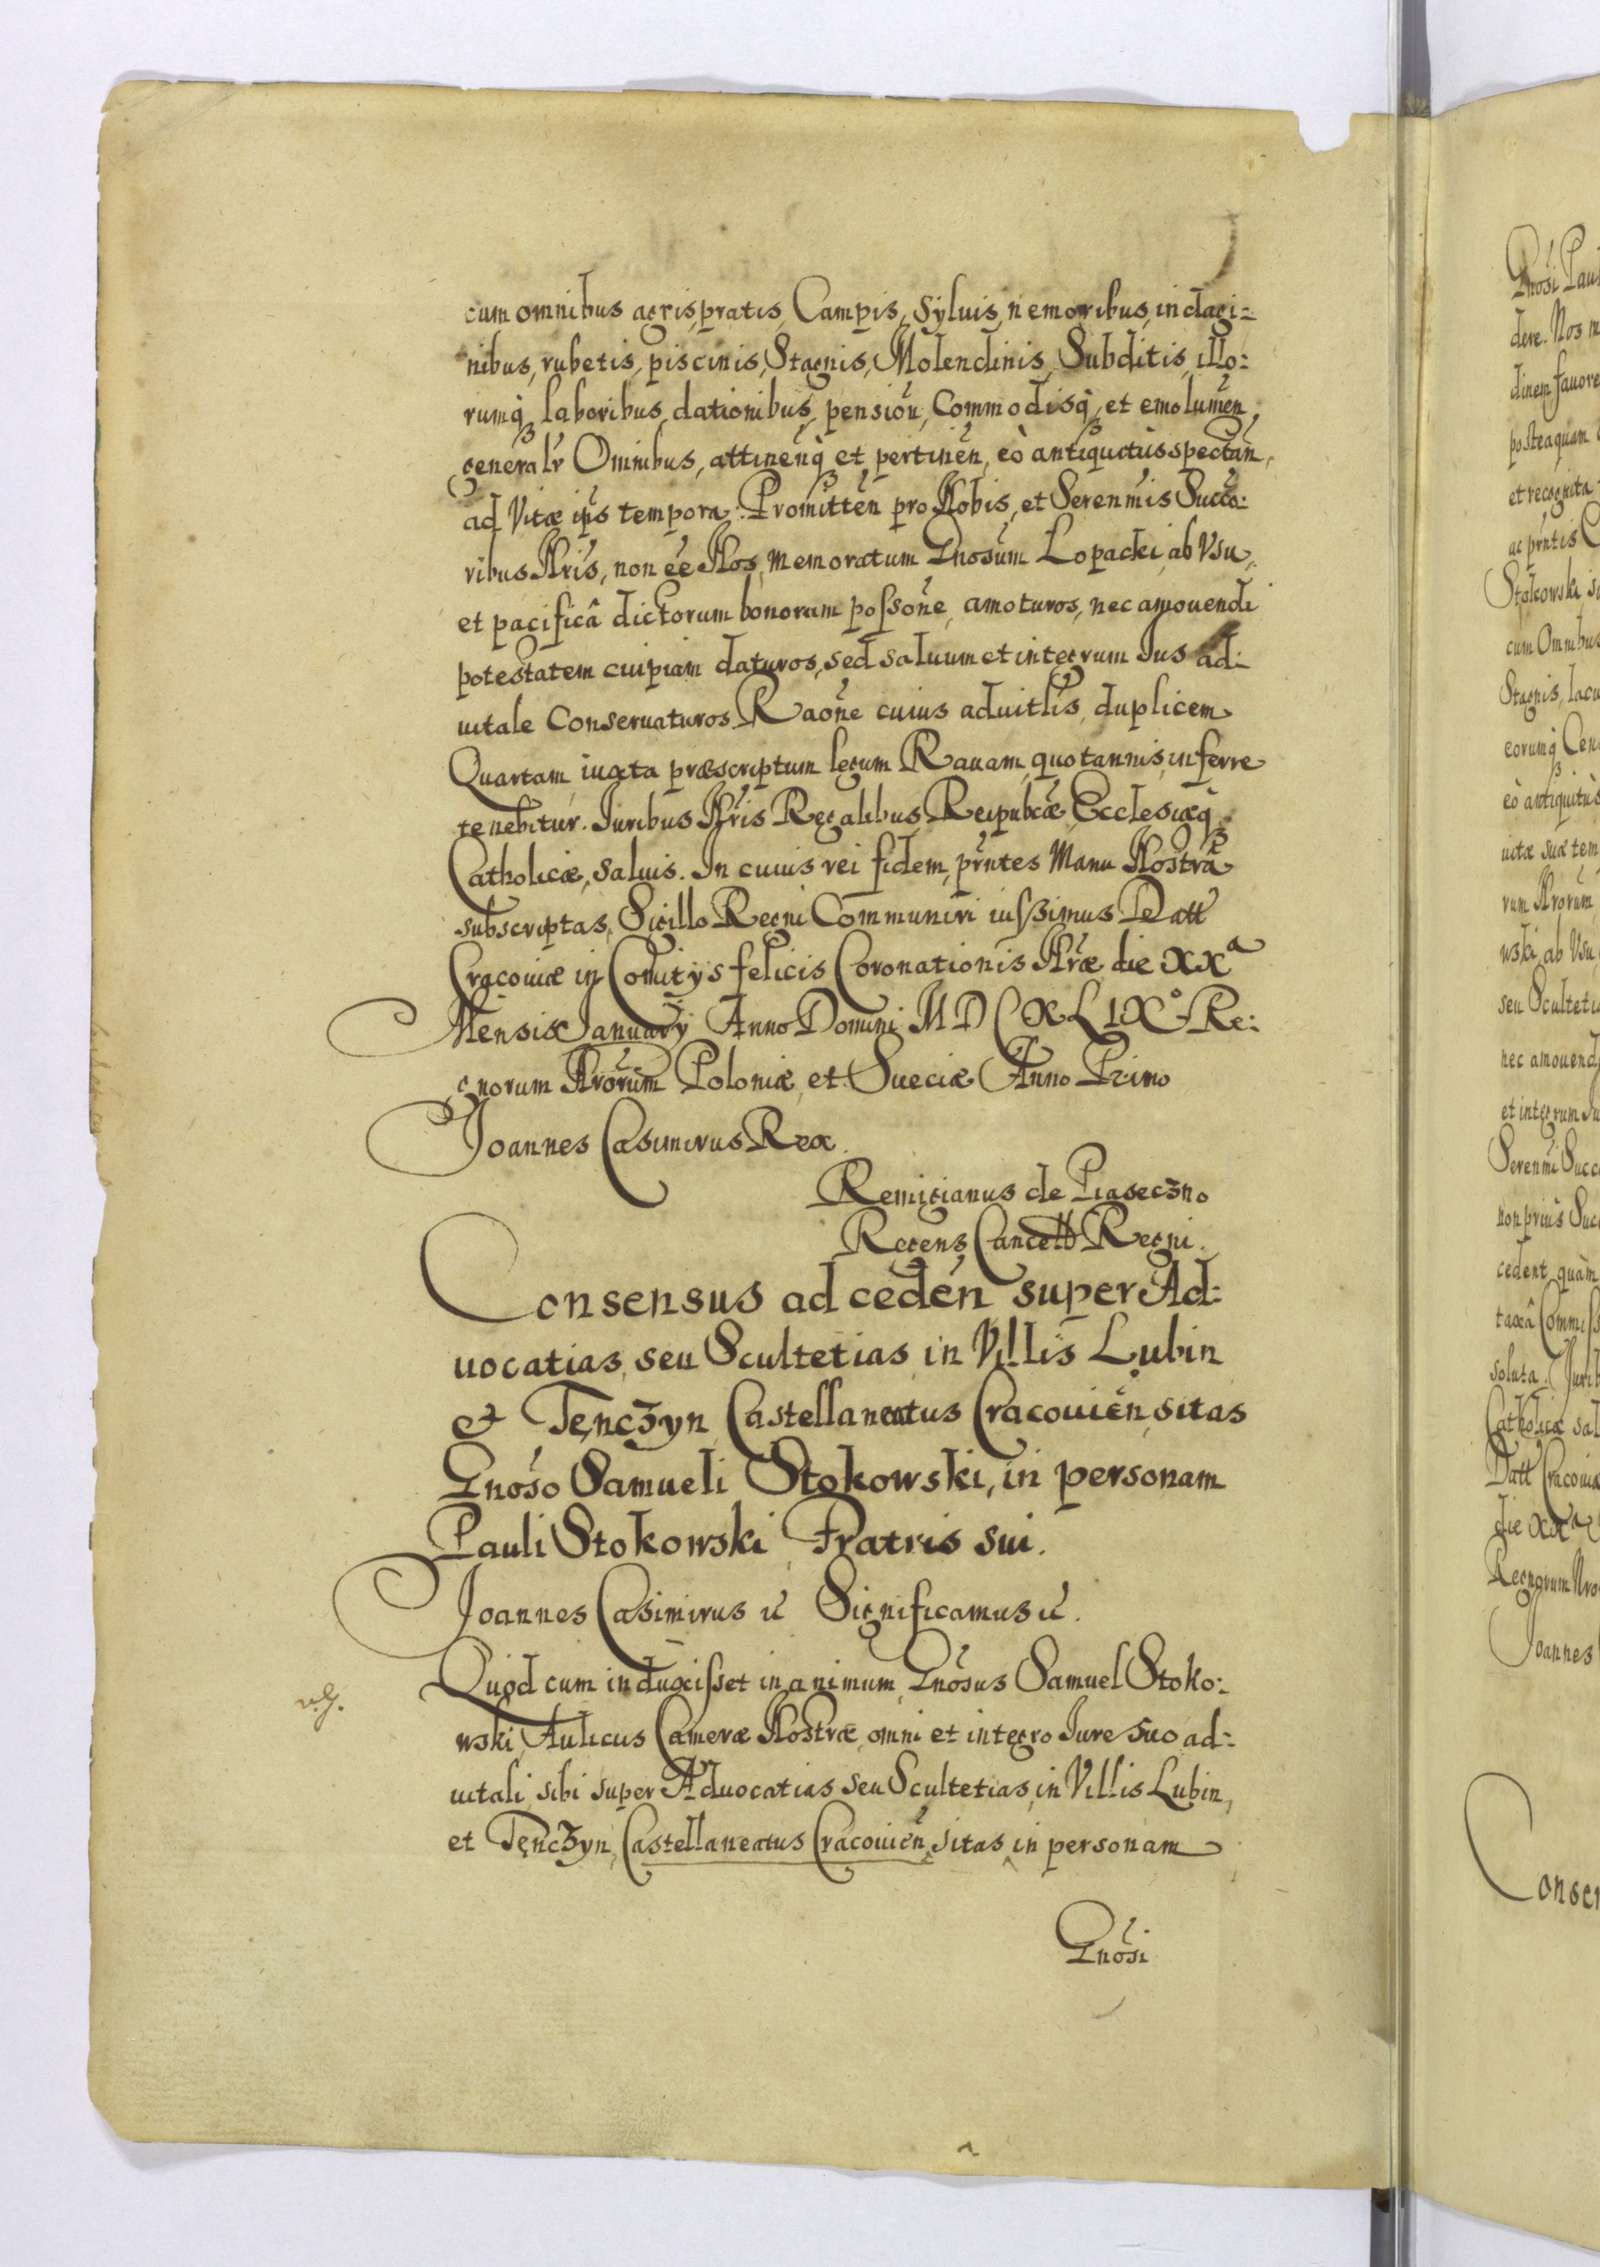 cum omnibus agris, pratis, Campis, Syluis, nemoribus, indagi-
nibus, rubetis, piscinis, Stagnis, Molendinis, Subditis, illo:
rumq̃ laboribus, dationibus, pensioũ, Commodisq̃, et emolumeñ,
generalr̃ Omnibus, attineñq̃ et pertineñ, eò antiquitùs spectañ,
ad Vitæ ip̃s tempora. Promitteñ pro Nobis, et Serenm̃is Succo:
ribus Nr̃is, non eẽ Nos, memoratum Gnõsum Lopacki, ab Vsu,
et pacificâ dictorum bonorum poßoñe, amoturos, nec amouendi
potestatem cuipiam daturos, sed saluum et integrum Jus ad:
uitale Conseruaturos. Raoñe cuius aduitlis, duplicem
Quartam, iuxta præscriptum legum Rauam, quotannis, inferre
tenebitur. Juribus Nr̃is Regalibus, Reipubcæ, Ecclesiæq̃
Catholicæ, saluis. In cuius rei fidem, pr̃ntes Manu Nostrâ
subscriptas, Sigillo Regni Communiri iussimus. Datt
Cracouiæ in Comitijs felicis Coronationis Nr̃æ die XXª
Mensis January Anno Domini MDCXLIXº Re:
gnorum Nrorũm Poloniæ, et Sueciæ Anno Primo
Joannes Casimirus Rex.
Remigianus de Piaseczno
Regens Cancell Regni.
Consensus ad cedeñ super Ad:
uocatias, seu Scultetias, in Villis Lubin
et Tęnczyn Castellaneatus Cracouieñ, sitas
Gnõso Samueli Stokowski, in personam
Pauli Stokowski Fratris sui.
Joannes Casimirus &c Significamus &c.
Quod cum induxisset in animum Gnõsus Samuel Stoko:
wski, Aulicus Cameræ Nostræ, omni et integro Jure suo ad:
uitali, sibi super Aduocatias seu Scultetias, in Villis Lubin,
et Tęnczyn, Castellaneatus Cracouieñ, sitas, in personam
Gnõsi
Gnõsi
dere. Nos
postea quam
et recognita
Stokowski
cum Omnibus
Stagnis
eò antiquitùs
uitæ suæ tem
wski, ab Vsu
nec amouend
et integrum
non prius
cedent, quàm
soluta.
Datt Cracouiæ
die XXª
Joannes
Consen